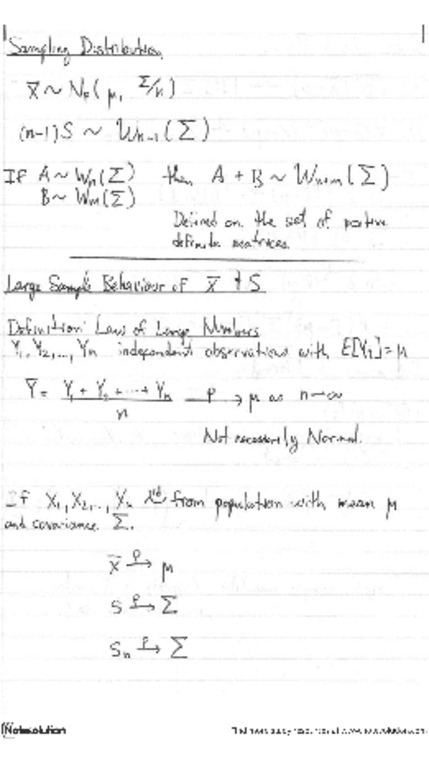 Sampling Distribution
X̄ ~ Np( μ, Σ/n )
(n-1) S ~ Wn-1 ( Σ )
If A ~ Wn(Σ) then A + B ~ Wn+m ( Σ )
B ~ Wm(Σ)
Defined on the set of positive
definite matrices.
Large Sample Behaviour of X̄ & S
Definition: Law of Large Numbers
Y1, Y2, ..., Yn independent observations with E[Y1] = μ
Ȳ = (Y1 + Y2 + ... + Yn)/n →p μ as n→∞
Not necessarily Normal.
If X1, X2, ..., Xn iid from population with mean μ
and covariance Σ.
X̄ →p μ
S →p Σ
Sn →p Σ
Notesolution
Find more study resources at www.notesolution.com